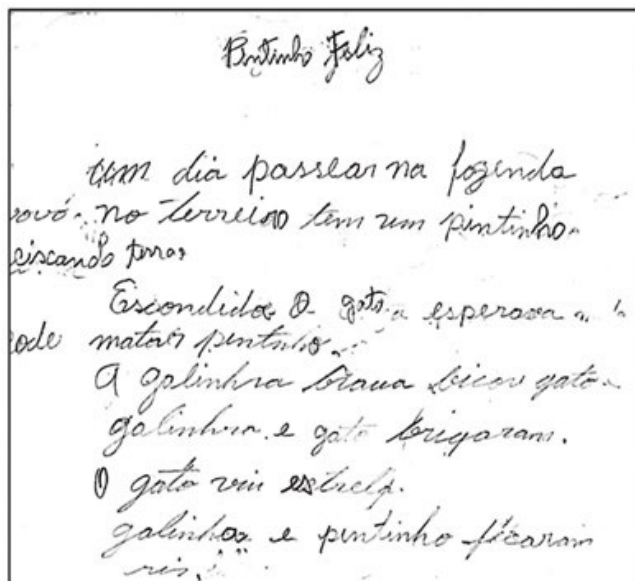 Pintinho Feliz
um dia passear na fazenda
vovó. no terreiro tem um pintinho
ciscando terra.
Escondido O gato esperava
ode matar pintinho.
A galinha brava bicou gato.
galinha e gato brigaram.
O gato viu estrela.
galinha e pintinho ficaram